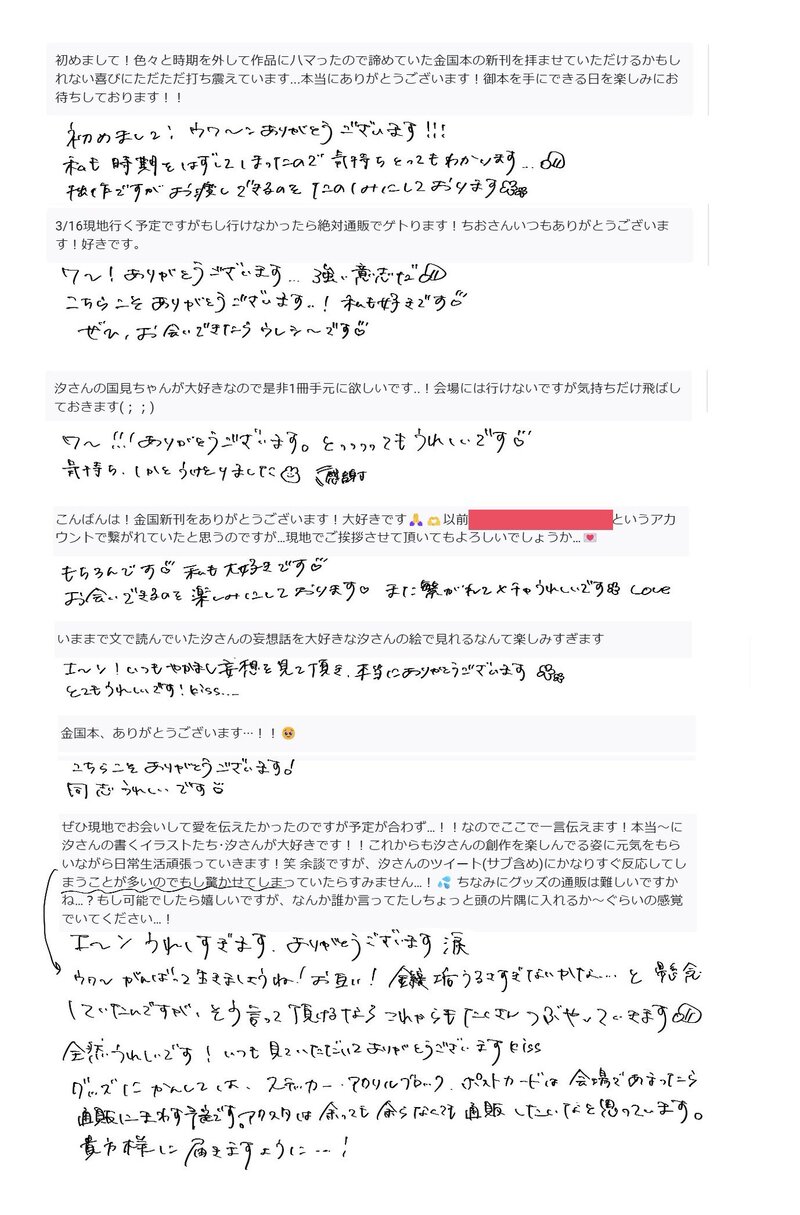 初めまして！色々と時期を外して作品にハマったので諦めていた金国本の新刊を拝ませていただけるかもし
れない喜びにただただ打ち震えています...本当にありがとうございます！御本を手にできる日を楽しみにお
待ちしております！！
初めまして! ウワ〜ンありがとうございます!!!
私も時期をはずしてしまったので気持ちとってもわかります...
拙作ですがお渡しできるのをたのしみにしております
3/16現地行く予定ですがもし行けなかったら絶対通販でゲトります！ちおさんいつもありがとうございま
す！好きです。
ワ〜!ありがとうございます...強い意志だ
こちらこそありがとうございます..!私も好きです
ぜひ、お会いできたらウレシ〜です
汐さんの国見ちゃんが大好きなので是非1冊手元に欲しいです..！会場には行けないですが気持ちだけ飛ばし
ておきます(；；)
ワ〜!!!ありがとうございます。とっっっってもうれしいです
気持ち、しかとうけとりました 感謝
こんばんは！金国新刊をありがとうございます！大好きです🙏🫶以前というアカ
ウントで繋がれていたと思うのですが...現地でご挨拶させて頂いてもよろしいでしょうか...💌
もちろんです♡私も大好きです♡
お会いできるのを楽しみにしております♡また繋がれてメチャうれしいです Love
いままで文で読んでいた汐さんの妄想話を大好きな汐さんの絵で見れるなんて楽しみすぎます
エ〜ン!いつもやかまし妄想を見て頂き、本当にありがとうございます
とてもうれしいです!kiss....
金国本、ありがとうございます…！！🥹
こちらこそありがとうございます!
同志うれしいです
ぜひ現地でお会いして愛を伝えたかったのですが予定が合わず...！！なのでここで一言伝えます！本当〜に
汐さんの書くイラストたち･汐さんが大好きです！！これからも汐さんの創作を楽しんでる姿に元気をもら
いながら日常生活頑張っていきます！笑 余談ですが、汐さんのツイート(サブ含め)にかなりすぐ反応してし
まうことが多いのでもし驚かせてしまっていたらすみません...！💦 ちなみにグッズの通販は難しいですか
ね...？もし可能でしたら嬉しいですが、なんか誰か言ってたしちょっと頭の片隅に入れるか〜ぐらいの感覚
でいてください...！
エ〜ンうれしすぎます、ありがとうございます涙
ウワ〜がんばって生きましょうね!お互い!鍵垢うるさすぎないかな...と懸念
していたんですが、そう言って頂けるならこれからもたくさんつぶやいていきます
全然うれしいです!いつも見ていただいてありがとうございますkiss
グッズにかんしては、ステッカー・アクリルブロック、ポストカードは会場であまったら
通販にまわす予定です。アクスタは余っても余らなくても通販したいなと思っています。
貴方様に届きますように…!